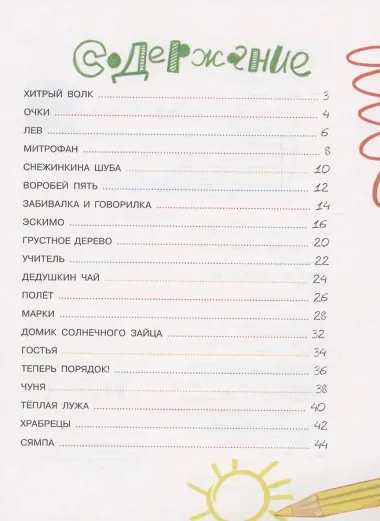 Содержание
ХИТРЫЙ ВОЛК 3
ОЧКИ 4
ЛЕВ 6
МИТРОФАН 8
СНЕЖИНКИНА ШУБА 10
ВОРОБЕЙ ПЯТЬ 12
ЗАБИВАЛКА И ГОВОРИЛКА 14
ЭСКИМО 16
ГРУСТНОЕ ДЕРЕВО 20
УЧИТЕЛЬ 22
ДЕДУШКИН ЧАЙ 24
ПОЛЁТ 26
МАРКИ 28
ДОМИК СОЛНЕЧНОГО ЗАЙЦА 32
ГОСТЬЯ 34
ТЕПЕРЬ ПОРЯДОК! 36
ЧУНЯ 38
ТЁПЛАЯ ЛУЖА 40
ХРАБРЕЦЫ 42
СЯМПА 44